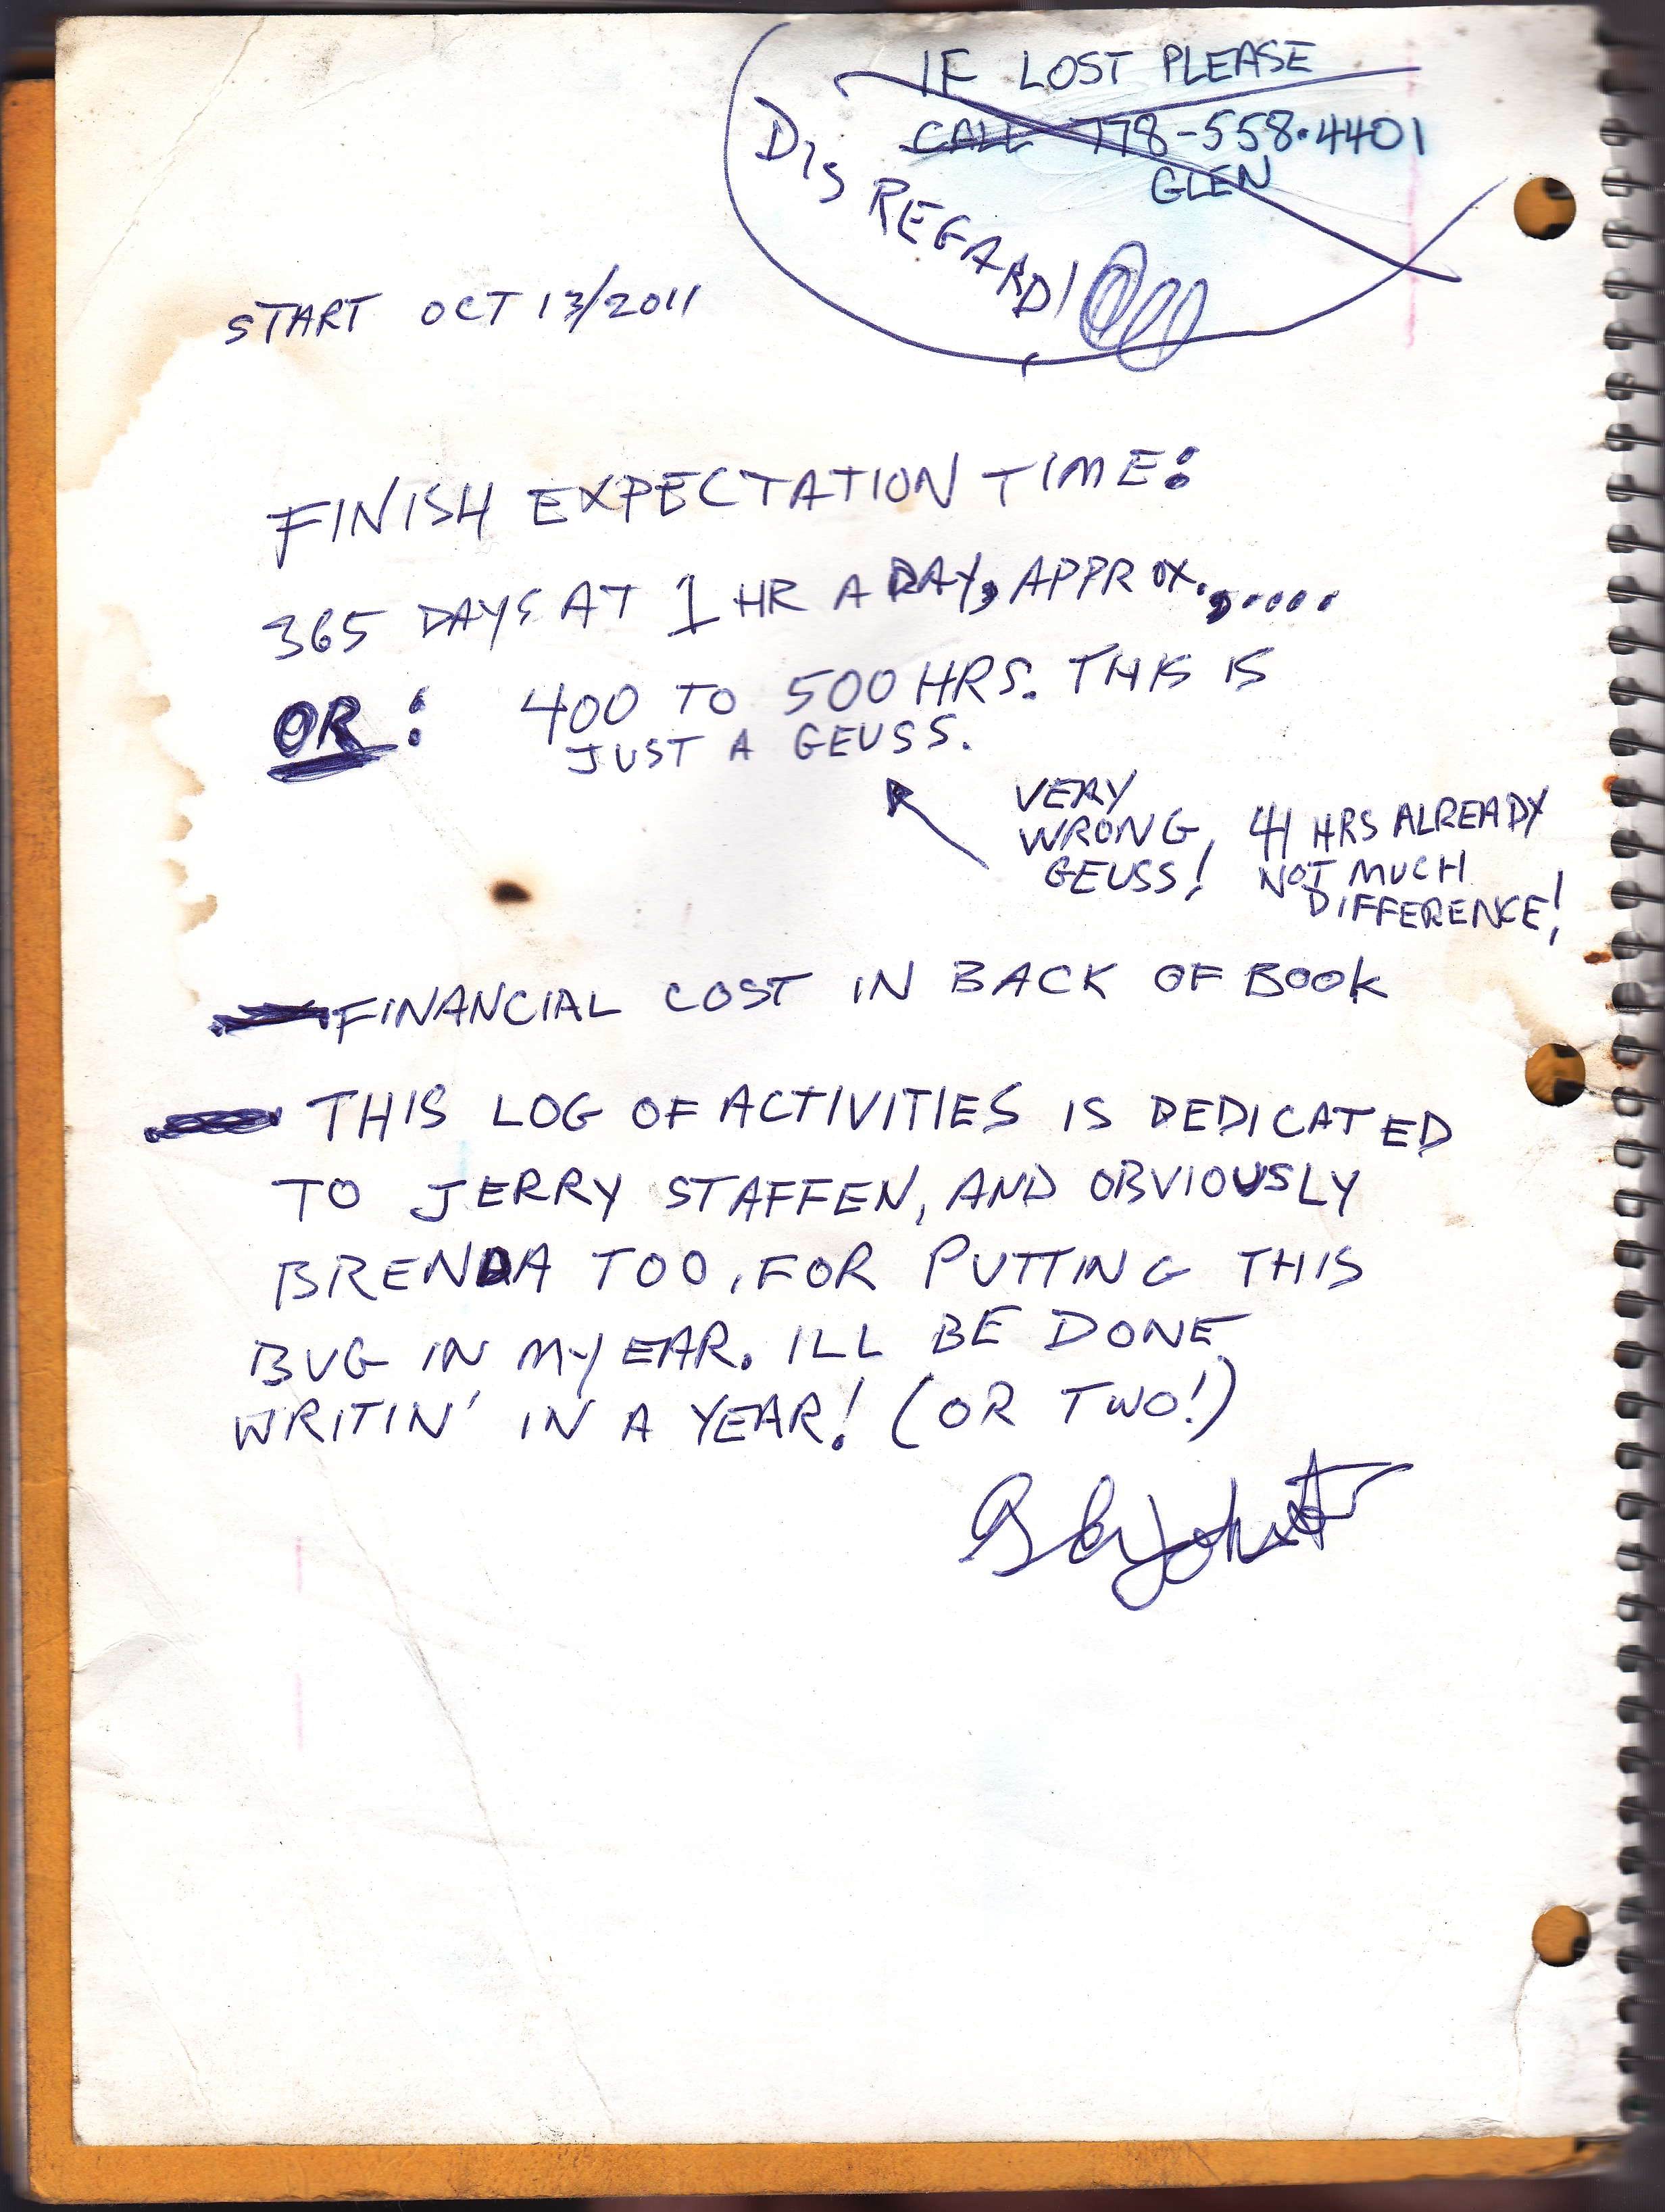 IF LOST PLEASE
CALL 778-558-4401
GLEN
DISREGARD!
START OCT 13/2011
FINISH EXPECTATION TIME:
365 DAYS AT 1 HR A DAY, APPROX.,.....
OR: 400 TO 500 HRS. THIS IS
JUST A GEUSS.
VERY
WRONG,
GEUSS!
41 HRS ALREADY
NOT MUCH
DIFFERENCE!
FINANCIAL COST IN BACK OF BOOK
THIS LOG OF ACTIVITIES IS DEDICATED
TO JERRY STAFFEN, AND OBVIOUSLY
BRENDA TOO, FOR PUTTING THIS
BUG IN MY EAR. ILL BE DONE
WRITIN' IN A YEAR! (OR TWO!)